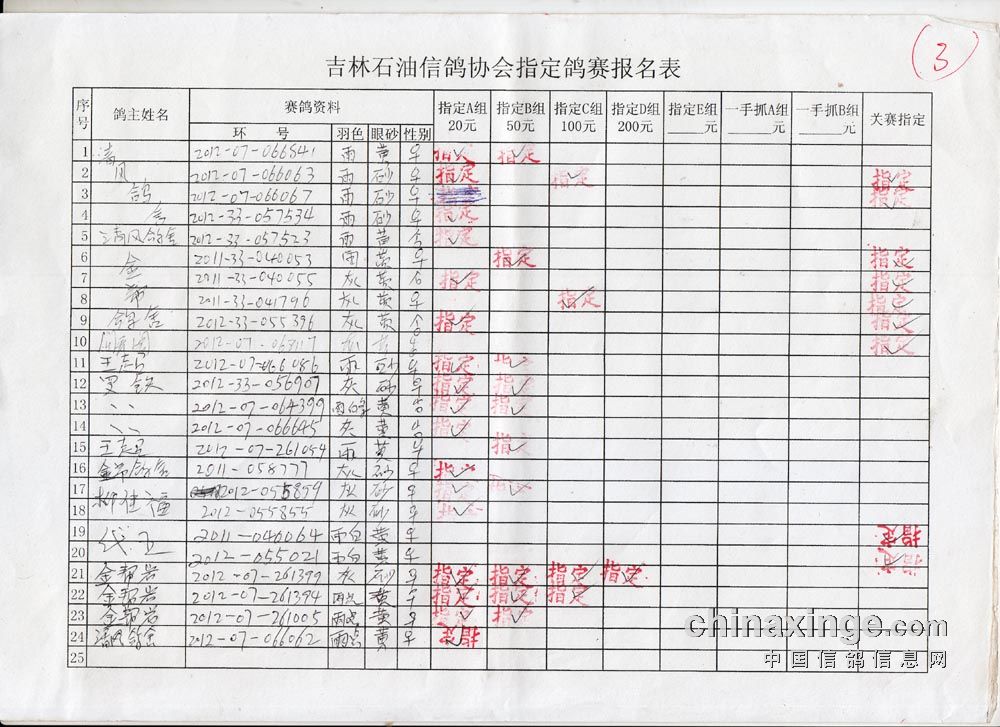 3
吉林石油信鸽协会指定鸽赛报名表
序号 鸽主姓名 赛鸽资料 指定A组 20元 指定B组 50元 指定C组 100元 指定D组 200元 指定E组 ____元 一手抓A组 ____元 一手抓B组 ____元 关赛指定
环 号 羽色 眼砂 性别
1 清 2012-07-066541 雨 黄 指定 指定
2 风 2012-07-066063 雨 砂 指定 指定 指定
3 鸽 2012-07-066067 雨 砂 指定
4 舍 2012-33-057534 雨 砂 指定
5 清风鸽舍 2012-33-057523 雨 黄 指定
6 金 2011-33-040053 黄 指定 指定
7 2011-33-040055 灰 黄 指定 指定
8 帮 2011-33-041796 灰 黄 指定 指定
9 鸽舍 2012-33-055396 灰 黄 指定 指定
10 2012-07-063117 指定
11 2012-07-066086 雨 砂 指定 指定
12 罗 2012-33-056907 灰 砂 指定 指定
13 、、 2012-07-064399 黄 指定 指定
14 、、 2012-07-066645 灰 黄 指定
15 2012-07-261054 雨 黄 指定
16 2011-058777 灰 砂 指定
17 柳 2012-055859 灰 砂 指定 指定
18 2012-055855 灰 砂 指定
19 2011-040064 雨白 黄 指定
20 2012-055021 雨白 黄 指定
21 金帮岩 2012-07-261399 灰 砂 指定 指定 指定 指定
22 金帮岩 2012-07-261394 雨点 黄 指定 指定 指定
23 金帮岩 2012-07-261005 雨点 黄 指定 指定
24 清风鸽舍 2012-07-066062 雨点 黄 指定
25
chinaxinge.com
中国信鸽信息网